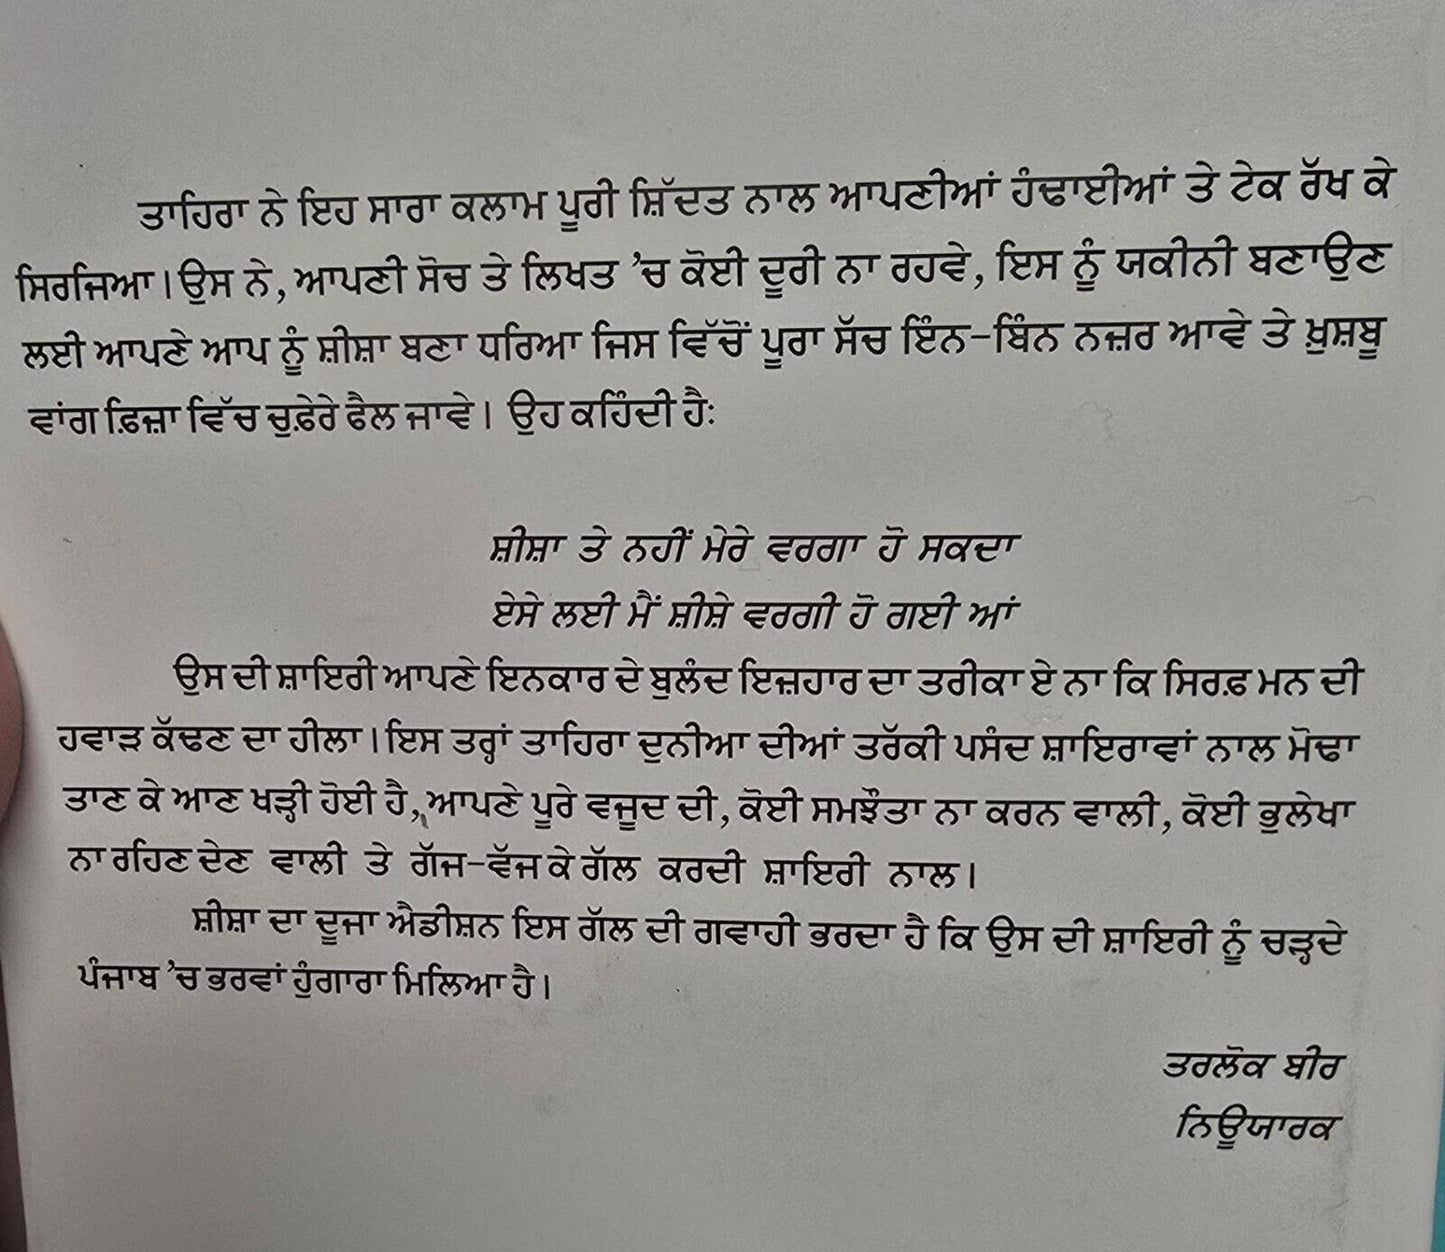 ਤਾਹਿਰਾ ਨੇ ਇਹ ਸਾਰਾ ਕਲਾਮ ਪੂਰੀ ਸ਼ਿੱਦਤ ਨਾਲ ਆਪਣੀਆਂ ਹੰਢਾਈਆਂ ਤੇ ਟੇਕ ਰੱਖ ਕੇ
ਸਿਰਜਿਆ। ਉਸ ਨੇ, ਆਪਣੀ ਸੋਚ ਤੇ ਲਿਖਤ ’ਚ ਕੋਈ ਦੂਰੀ ਨਾ ਰਹਵੇ, ਇਸ ਨੂੰ ਯਕੀਨੀ ਬਣਾਉਣ
ਲਈ ਆਪਣੇ ਆਪ ਨੂੰ ਸ਼ੀਸ਼ਾ ਬਣਾ ਧਰਿਆ ਜਿਸ ਵਿੱਚੋਂ ਪੂਰਾ ਸੱਚ ਇੰਨ-ਬਿੰਨ ਨਜ਼ਰ ਆਵੇ ਤੇ ਖ਼ੁਸ਼ਬੂ
ਵਾਂਗ ਫ਼ਿਜ਼ਾ ਵਿੱਚ ਚੁਫ਼ੇਰੇ ਫੈਲ ਜਾਵੇ। ਉਹ ਕਹਿੰਦੀ ਹੈ:
ਸ਼ੀਸ਼ਾ ਤੇ ਨਹੀਂ ਮੇਰੇ ਵਰਗਾ ਹੋ ਸਕਦਾ
ਏਸੇ ਲਈ ਮੈਂ ਸ਼ੀਸ਼ੇ ਵਰਗੀ ਹੋ ਗਈ ਆਂ
ਉਸ ਦੀ ਸ਼ਾਇਰੀ ਆਪਣੇ ਇਨਕਾਰ ਦੇ ਬੁਲੰਦ ਇਜ਼ਹਾਰ ਦਾ ਤਰੀਕਾ ਏ ਨਾ ਕਿ ਸਿਰਫ਼ ਮਨ ਦੀ
ਹਵਾੜ ਕੱਢਣ ਦਾ ਹੀਲਾ। ਇਸ ਤਰ੍ਹਾਂ ਤਾਹਿਰਾ ਦੁਨੀਆ ਦੀਆਂ ਤਰੱਕੀ ਪਸੰਦ ਸ਼ਾਇਰਾਵਾਂ ਨਾਲ ਮੋਢਾ
ਤਾਣ ਕੇ ਆਣ ਖੜ੍ਹੀ ਹੋਈ ਹੈ, ਆਪਣੇ ਪੂਰੇ ਵਜੂਦ ਦੀ, ਕੋਈ ਸਮਝੌਤਾ ਨਾ ਕਰਨ ਵਾਲੀ, ਕੋਈ ਭੁਲੇਖਾ
ਨਾ ਰਹਿਣ ਦੇਣ ਵਾਲੀ ਤੇ ਗੱਜ-ਵੱਜ ਕੇ ਗੱਲ ਕਰਦੀ ਸ਼ਾਇਰੀ ਨਾਲ।
ਸ਼ੀਸ਼ਾ ਦਾ ਦੂਜਾ ਐਡੀਸ਼ਨ ਇਸ ਗੱਲ ਦੀ ਗਵਾਹੀ ਭਰਦਾ ਹੈ ਕਿ ਉਸ ਦੀ ਸ਼ਾਇਰੀ ਨੂੰ ਚੜ੍ਹਦੇ
ਪੰਜਾਬ ’ਚ ਭਰਵਾਂ ਹੁੰਗਾਰਾ ਮਿਲਿਆ ਹੈ।
ਤਰਲੋਕ ਬੀਰ
ਨਿਊਯਾਰਕ